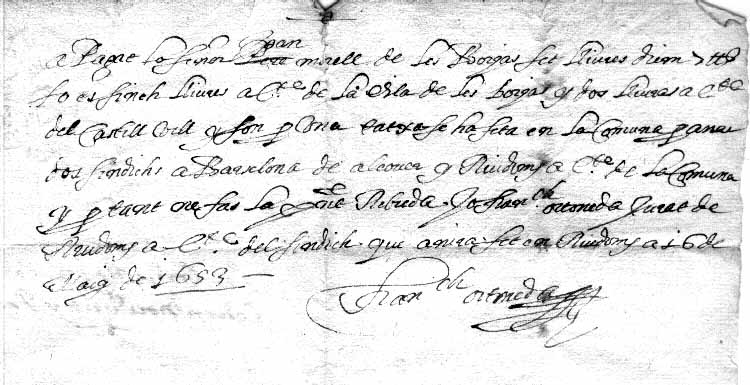 Joan
a Pagat lo señor Pere morell de les Borjas set lliures diem 7 ₶
so es sinch lliures a Cte. de la Vila de les borjas y dos lliuras a Cte
del Castell Vell y son p Una tatxa se ha feta en la Comuna p anar
dos sindichs a Barselona de alcover y Riudoms a Cte. de la Comuna
y p tant ne fas la pnt Rebuda Jo franch ortoneda Jurat de
Riudoms a Cte. del sindich que anira fet en Riudoms a 16 de
Maig de 1653
franch ortoneda